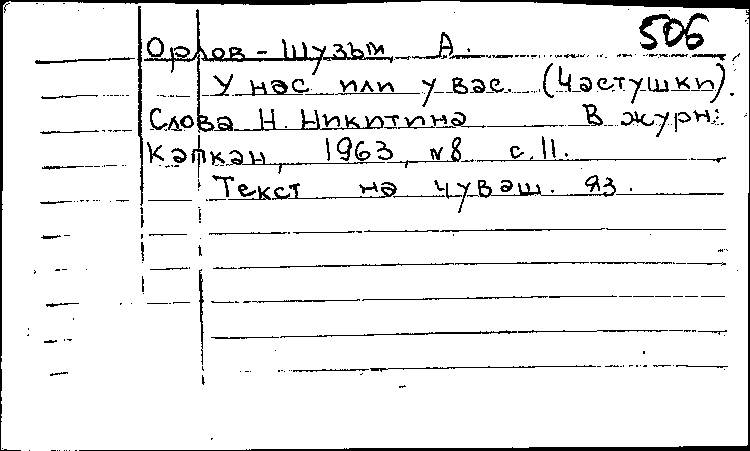 506
Орлов-Шузьм, А.
У нас или у вас. (Частушки).
Слова Н. Никитина В журн:
Капкан, 1963, №8 с.11.
Текст на чуваш. яз.